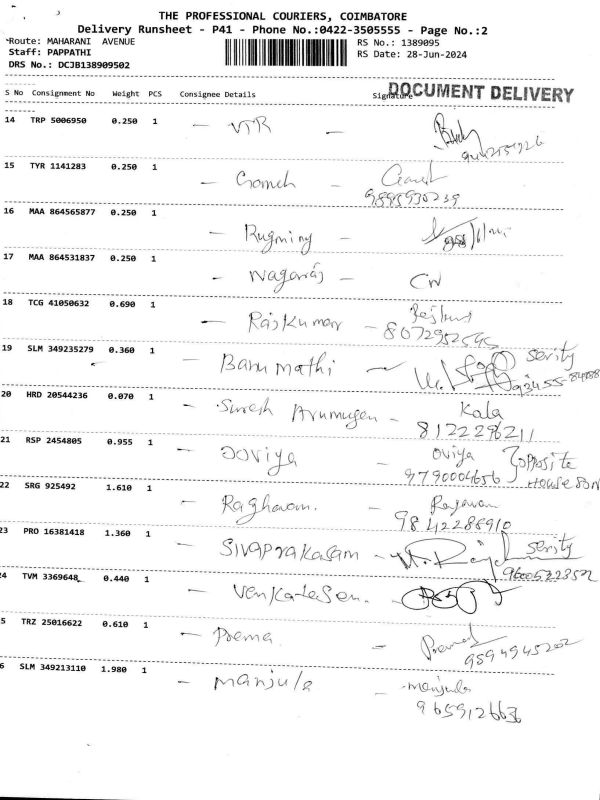 THE PROFESSIONAL COURIERS, COIMBATORE
Delivery Runsheet - P41 - Phone No.:0422-3505555 - Page No.:2
Route: MAHARANI AVENUE
RS No.: 1389095
Staff: PAPPATHI
RS Date: 28-Jun-2024
DRS No.: DCJB138909502
DOCUMENT DELIVERY
S No Consignment No Weight PCS Consignee Details Signature
14 TRP 5006950 0.250 1
- VTR -
15 TYR 1141283 0.250 1
9895930239
16 MAA 864565877 0.250 1
- Rugminy -
17 MAA 864531837 0.250 1
- Nagaraj - CN
18 TCG 41050632 0.690 1
- Rajkumar - 8072952545
19 SLM 349235279 0.360 1
- Banumathi - serity
20 HRD 20544236 0.070 1
- Suresh Arumugen - Kala
8122296211
21 RSP 2454805 0.955 1
- Joviya - oviya
9790004656 } opposite
22 SRG 925492 1.610 1
- Raghavan. -
9842286910
23 PRO 16381418 1.360 1
- SIVAPrakasam - serity
9600522352
24 TVM 3369648 0.440 1
- Venkatesen. -
5 TRZ 25016622 0.610 1
- Prema -
9594945202
6 SLM 349213110 1.980 1
- Manjula - Manjula
9659126636